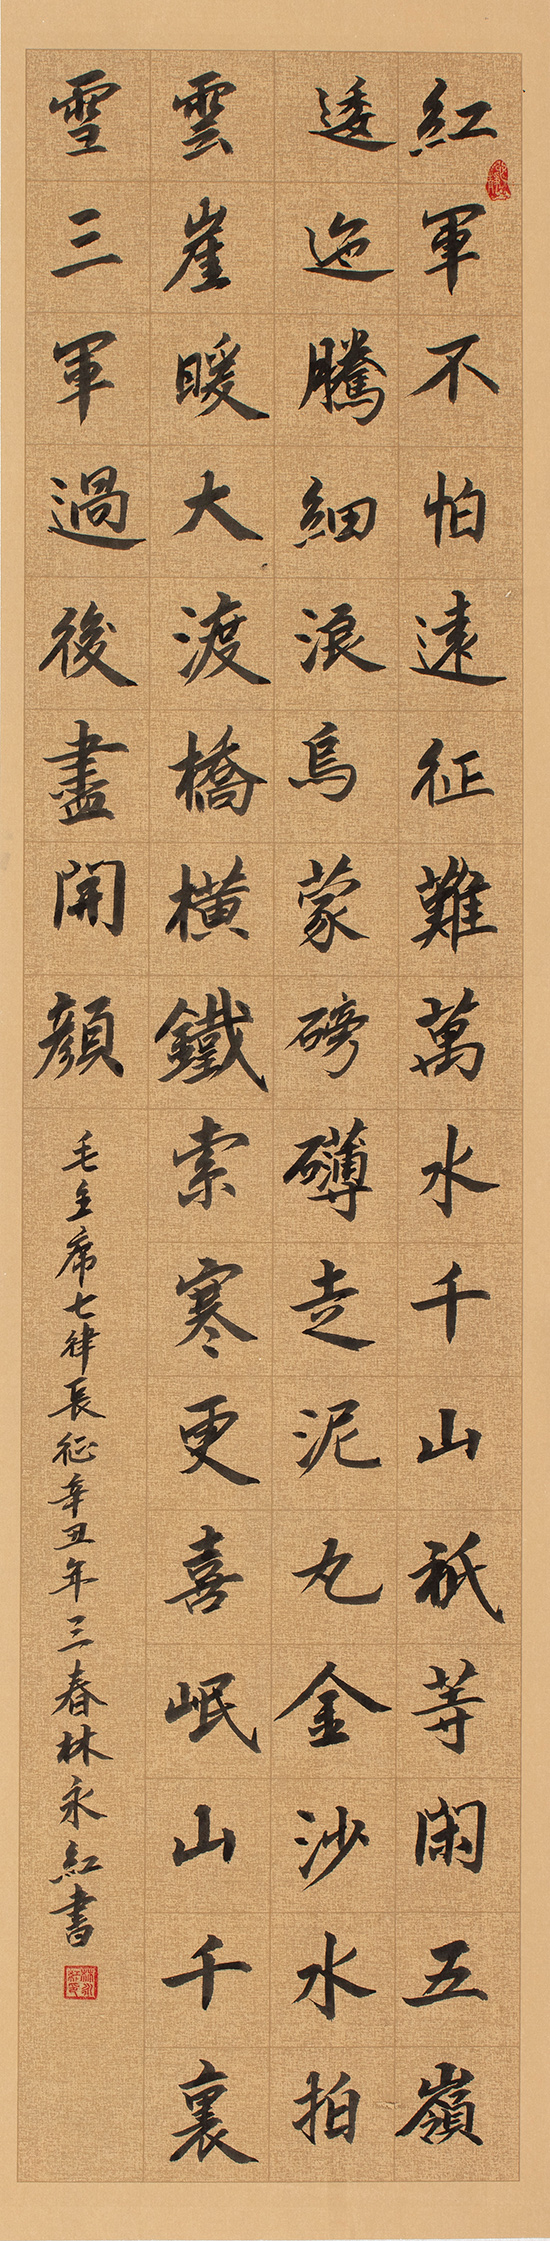 紅軍不怕遠征難萬水千山祇等閑五嶺
逶迤騰細浪烏蒙磅礴走泥丸金沙水拍
雲崖暖大渡橋橫鐵索寒更喜岷山千裏
雪三軍過後盡開顏
毛主席七律長征辛丑年三春林永紅書